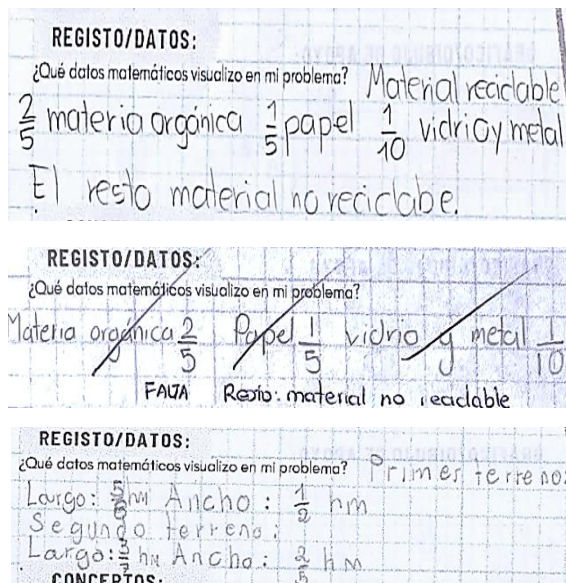 REGISTO/DATOS:
¿Qué datos matemáticos visualizo en mi problema? Material reciclable
2/5 materia orgánica 1/5 papel 1/10 vidrio y metal
El resto material no reciclabe.
REGISTO/DATOS:
¿Qué datos matemáticos visualizo en mi problema?
Materia orgánica 2/5 Papel 1/5 vidrio y metal 1/10
FALTA Resto: material no reciclable
REGISTO/DATOS:
¿Qué datos matemáticos visualizo en mi problema? Primer terreno:
Largo: hm Ancho: 1/2 hm
Segundo terreno:
Largo: hm Ancho: 2/5 hm
CONCEPTOS: